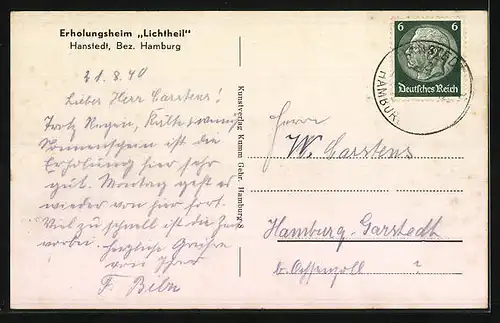 Erholungsheim „Lichtheil"
Hanstedt, Bez. Hamburg
21.8.40
Lieber Herr Carstens!
Trotz Regen, Kälte, wenig
Sonnenschein ist die
Erholung hier sehr
gut. Montag geht es
wieder von hier fort.
Viel zu schnell ist die Zeit
vorbei. Herzliche Grüße
von Ihrer
F.
Kunstverlag Kumm Gebr. Hamburg 8
6 6
Deutsches Reich
HAMBURG
Herrn
W. Carstens
Hamburg-Garstedt
b. Ochsenzoll